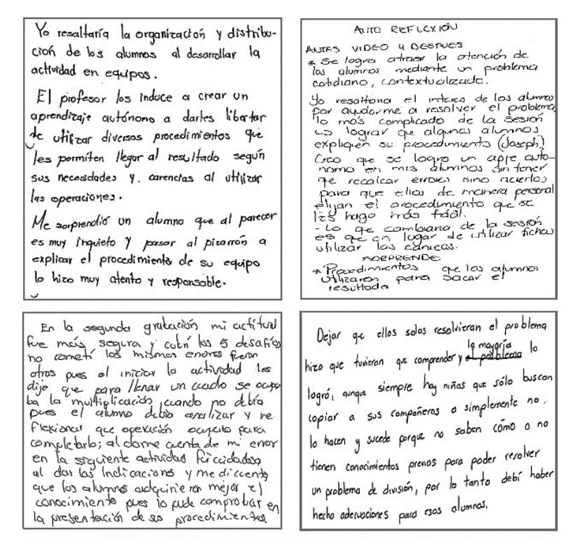 Yo resaltaría la organización y distribu-
ción de los alumnos al desarrollar la
actividad en equipos.
El profesor los induce a crear un
aprendizaje autónomo a darles libertar
de utilizar diversos procedimientos que
les permiten llegar al resultado según
sus necesidades y carencias al utilizar
las operaciones.
Me sorprendió un alumno que al parecer
es muy inquieto y pasar al pizarrón a
explicar el procedimiento de su equipo
lo hizo muy atento y responsable.
AUTO REFLEXIÓN
ANTES VIDEO 4 DESPUES
* Se logra atraer la atención de
los alumnos mediante un problema
cotidiano, contextualizado.
Yo resaltaria el interes de los alumnos
por ayudarme a resolver el problema
lo más complicado de la sesión
es lograr que algunos alumnos
expliquen su procedimiento (Joseph)
Creo que se logro un apre auto-
nomo en mis alumnos sin tener
que recalcar errores sino aciertos
para que ellos de manera personal
elijan el procedimiento que se
les haga más fácil.
- Lo que cambiaria de la sesión
es que en lugar de utilizar fichas
utilizar las canicas.
SORPRENDE
* Procedimientos que los alumnos
utilizaron para sacar el
resultado
En la segunda grabación mi actitud
fue más segura y cubrí los 5 desafíos
no cometí los mismos errores fueron
otros pues al iniciar la actividad les
dije que para llenar un cuadro se ocupa
ba la multiplicación, cuando no debía
pues el alumno debía analizar y re
flexionar que operación ocuparía para
completarlo; al darme cuenta de mi error
en la siguiente actividad fui cuidadosa
al dar las indicaciones y me di cuenta
que los alumnos adquirieron mejor el
conocimiento pues lo pude comprobar en
la presentación de sus procedimientos
Dejar que ellos solos resolvieran el problema
hizo que tuvieran que comprender y la mayoría lo
logró, aunque siempre hay niñas que sólo buscan
copiar a sus compañeros o simplemente no
lo hacen y sucede porque no saben cómo o no
tienen conocimientos previos para poder resolver
un problema de división, por lo tanto debí haber
hecho adecuaciones para esos alumnos.